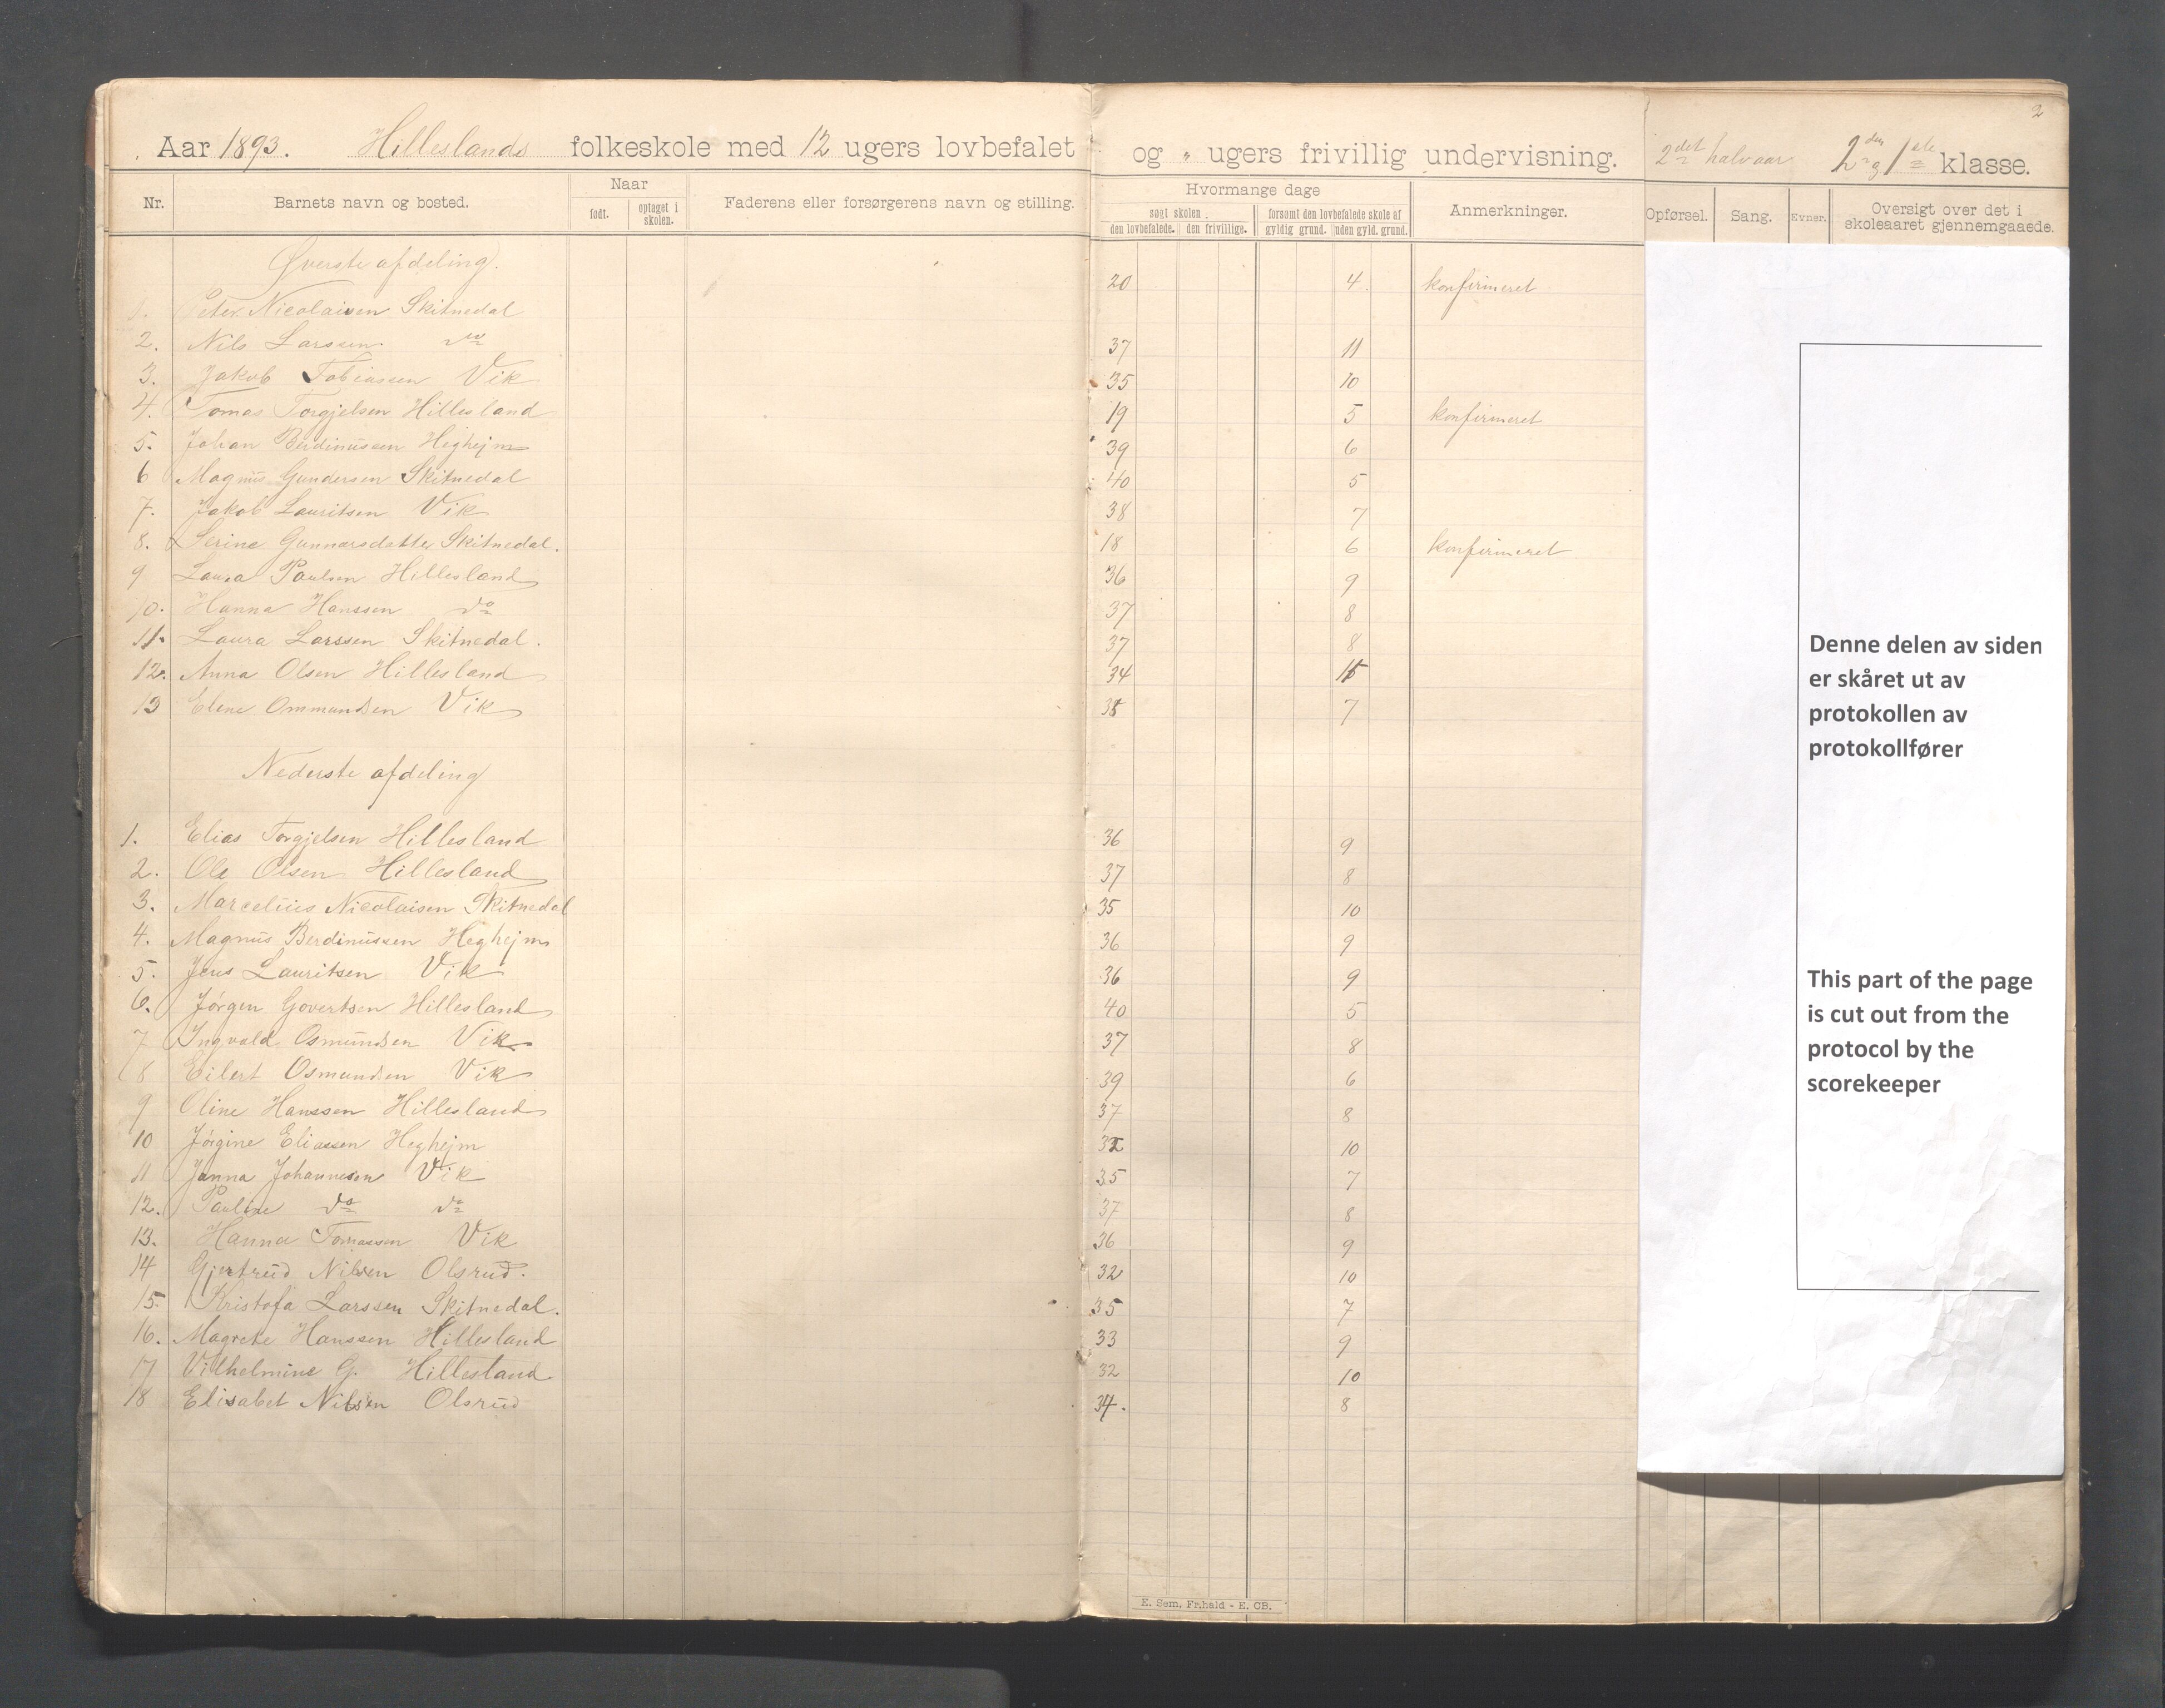 2
Aar 1893. Hilleslands folkeskole med 12 ugers lovbefalet og " ugers frivillig undervisning. 2det halvaar 2den og 1ste klasse.
Nr. Barnets navn og bosted. Naar født. optaget i skolen. Faderens eller forsørgerens navn og stilling. Hvormange dage søgt skolen. den lovbefalede. den frivillige. forsømt den lovbefalede skole af gyldig grund. uden gyld. grund. Anmerkninger. Opførsel. Sang. Evner. Oversigt over det i skoleaaret gjennemgaaede.
Øverste afdeling.
1. Peter Nicolaisen Skitnedal 20 4 konfirmeret
2. Nils Larssen do 37 11
3. Jakob Tobiassen Vik 35 10
4. Tomas Torgjelsen Hillesland 19 5 konfirmeret
5. Johan Berdinussen Heghejm 39 6
6 Magnus Gundersen Skitnedal 40 5
7. Jakob Lauritsen Vik 38 7
8. Serine Gunnarsdatter Skitnedal. 18 6 konfirmeret
9 Laura Paulsen Hillesland 36 9
10. Hanna Hanssen do 37 8
11. Laura Larssen Skitnedal. 37 8
12. Anna Olsen Hillesland 34
13 Elene Ommundsen Vik 7
Nederste afdeling
1. Elias Torgjelsen Hillesland 36 9
2. Ole Olsen Hillesland 37 8
3. Marcelius Nicolaisen Skitnedal 35 10
4. Magnus Berdinussen Heghejm 36 9
5. Jens Lauritsen Vik 36 9
6. Jørgen Govertsen Hillesland 40 5
7 Ingvald Osmundsen Vik 37 8
8 Eilert Osmundsen Vik 39 6
9 Oline Hanssen Hillesland 37 8
10 Jørgine Eliassen Heghejm 32 10
11 Janna Johannesen Vik 35 7
12. Pauline do do 37 8
13. Hanna Tomassen Vik 36 9
14 Gjertrud Nilsen Olsrud. 32 10
15. Kristofa Larssen Skitnedal. 35 7
16. Magrete Hanssen Hillesland 33 9
17 Vilhelmine G. Hillesland 32 10
18 Elisabet Nilsen Olsrud 34. 8
E. Sem, Fr.hald - E. CB.
Denne delen av siden
er skåret ut av
protokollen av
protokollfører
This part of the page
is cut out from the
protocol by the
scorekeeper